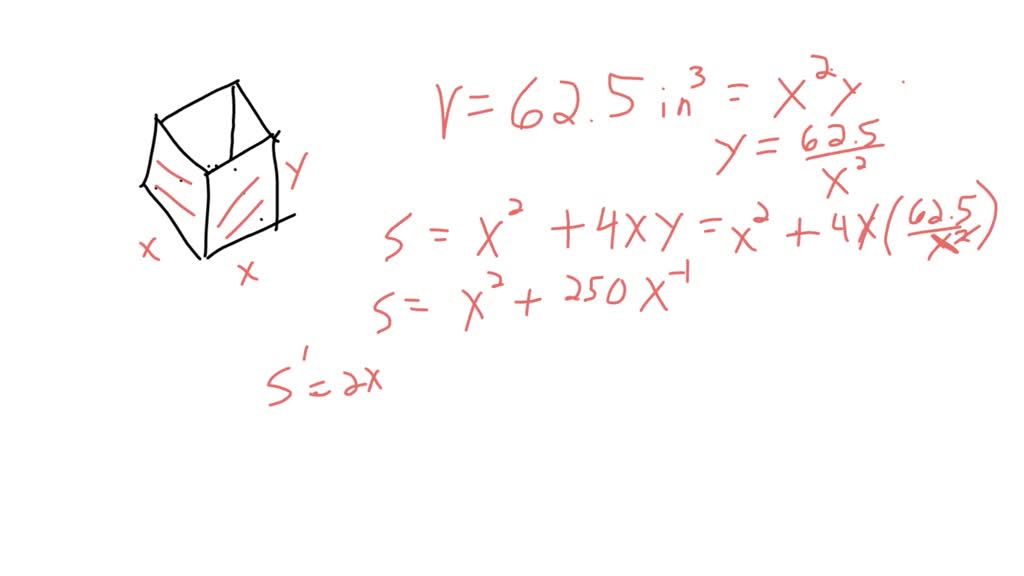 V = 62.5 in³ = x²y
y = 62.5/x²
S = x² + 4xy = x² + 4x(62.5/x²)
S = x² + 250x⁻¹
S' = 2x
y
x
x